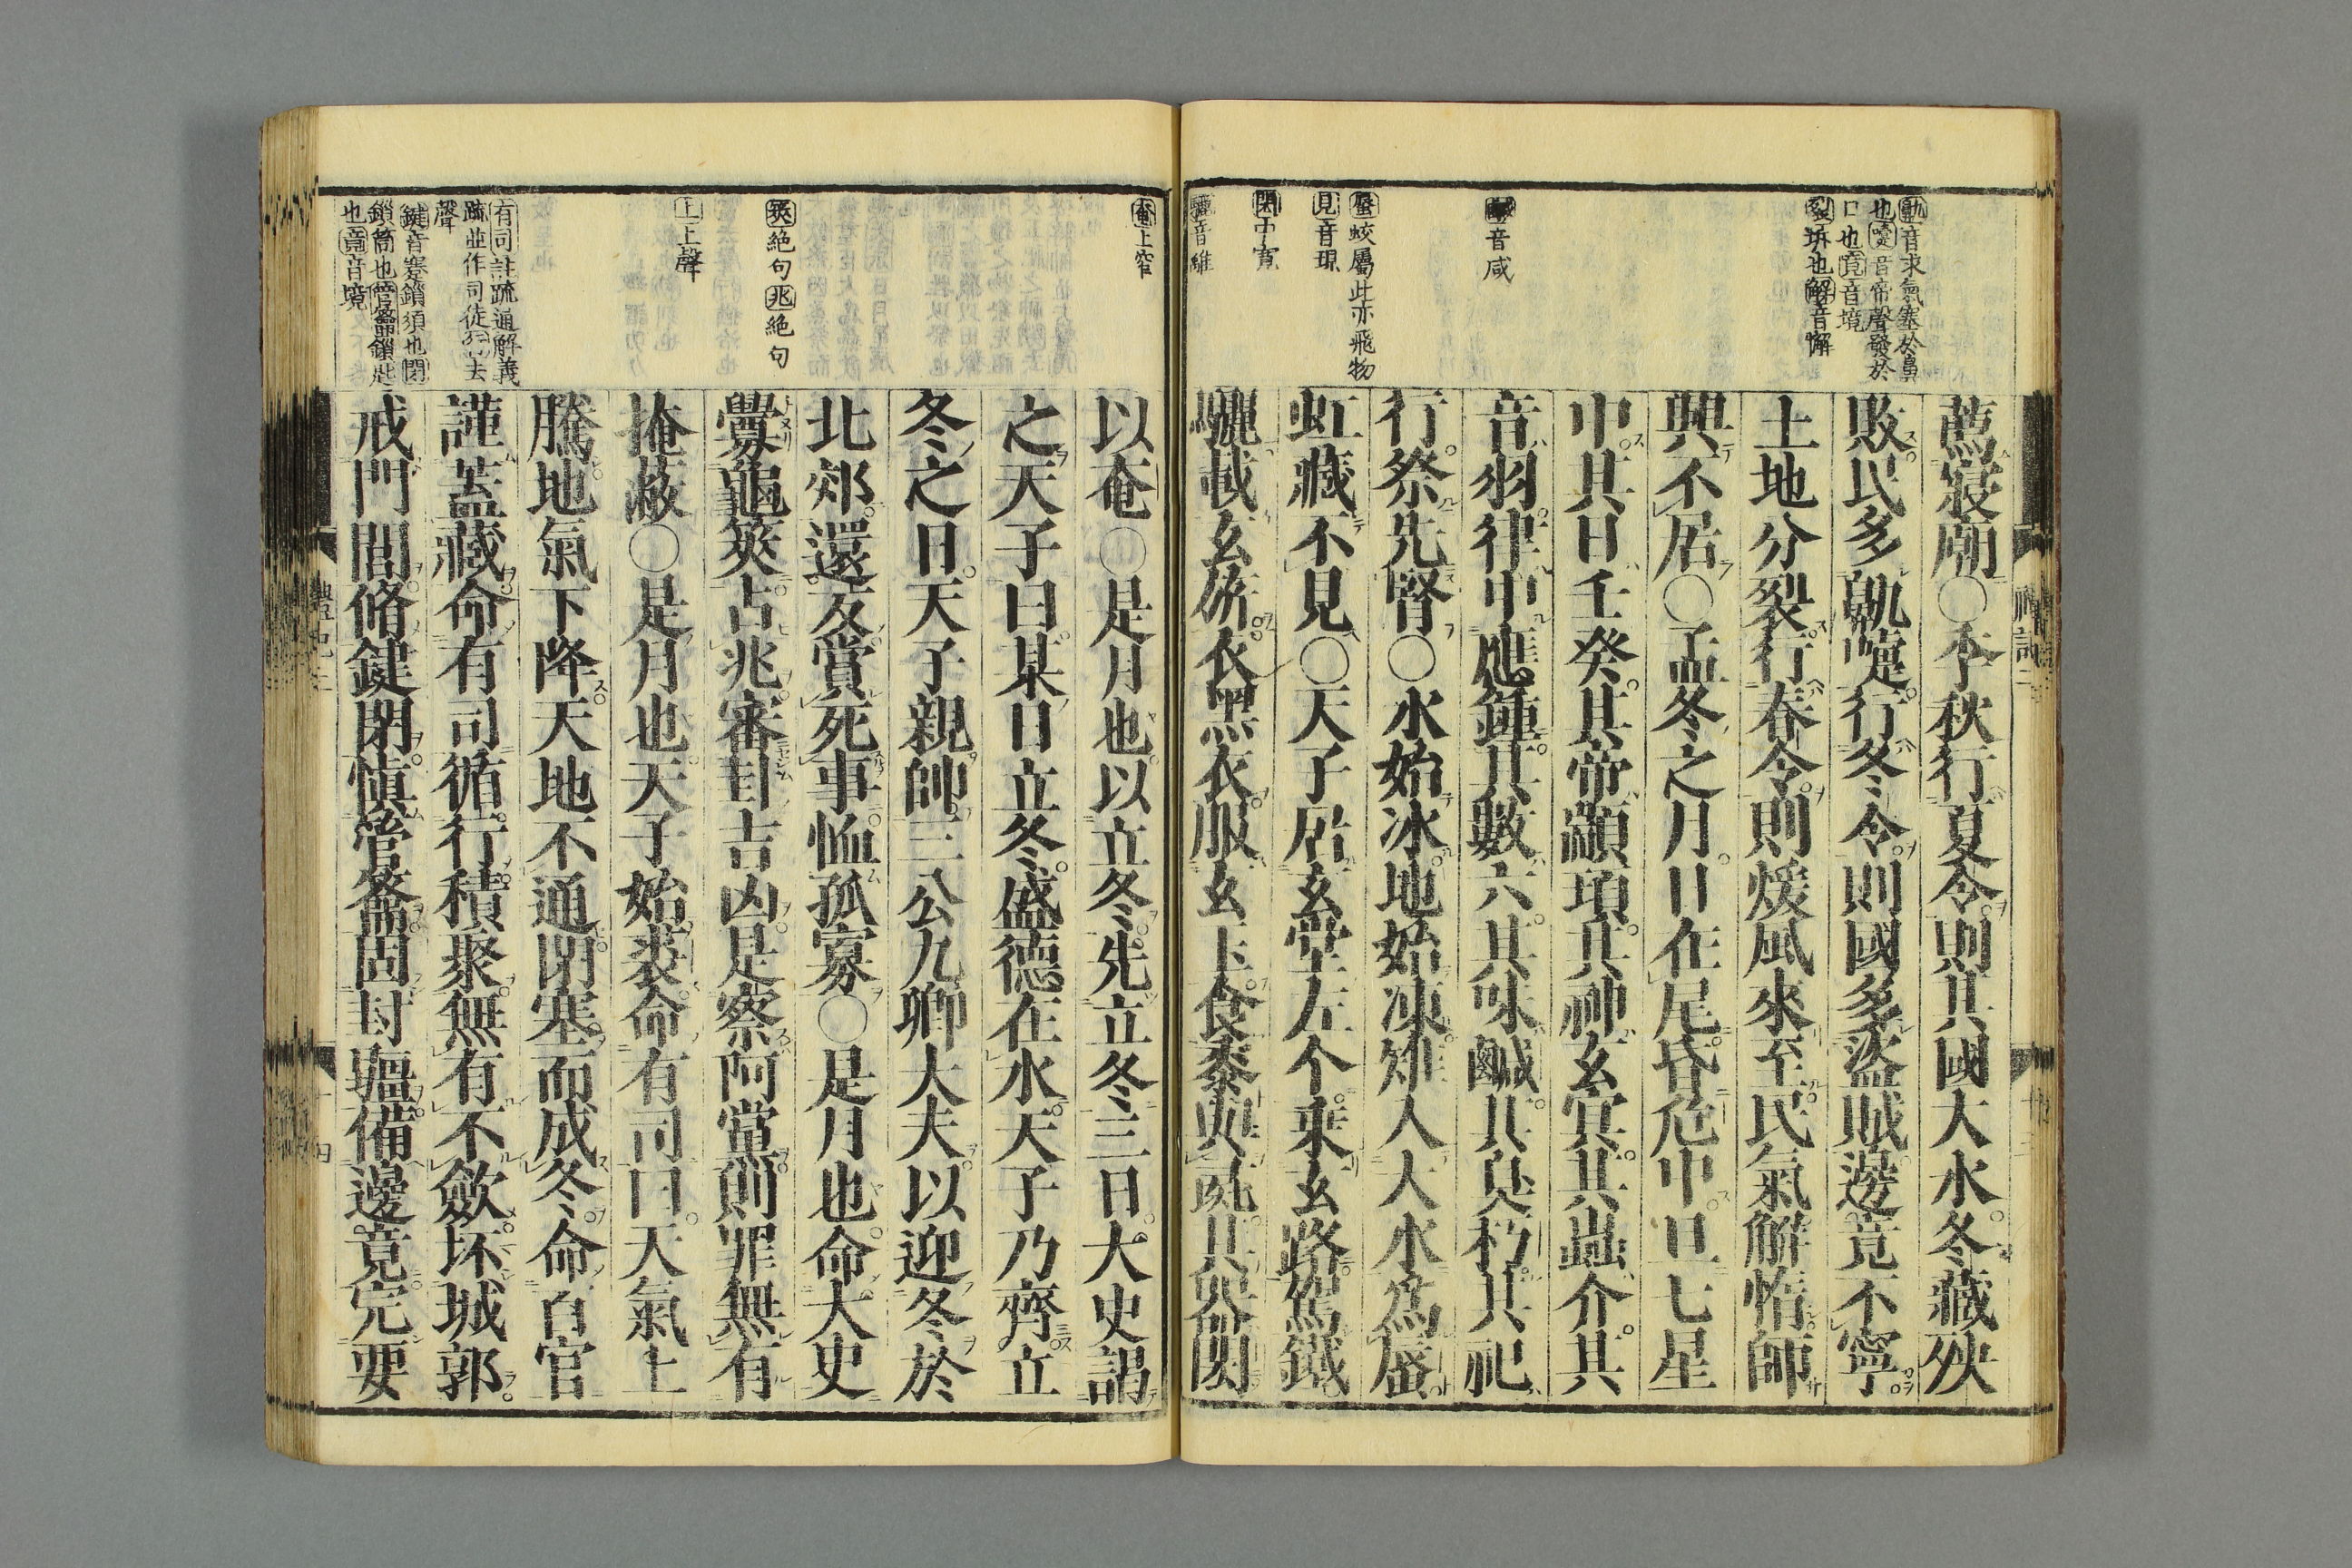 鼽音求氣塞於鼻
也嚏音帝聲發於
口也竟音境
裂坼也解音懈
音咸
蜃蛟屬此亦飛物
見音現
閎中寬
驪音離
薦寢廟○季秋行夏令則其國大水冬藏殃
敗民多鼽嚏行冬令則國多盜賊邊竟不寧
土地分裂行春令則煖風來至民氣解惰師
興不居○孟冬之月日在尾昏危中旦七星
中其日壬癸其帝顓頊其神玄冥其蟲介其
音羽律中應鍾其數六其味鹹其臭朽其祀
行祭先腎○水始冰地始凍雉入大水爲蜃
虹藏不見○天子居玄堂左个乘玄路駕鐵
驪載玄旂衣黑衣服玄玉食黍與彘其器閎
奄上窄
筴絶句兆絶句
上上聲
有司註疏通解義
疏並作司徒行去
聲
鍵音蹇鎖須也閉
鎖筒也管籥鎖匙
也竟音境
以奄○是月也以立冬先立冬三日大史謁
之天子曰某日立冬盛德在水天子乃齊立
冬之日天子親帥三公九卿大夫以迎冬於
北郊還反賞死事恤孤寡○是月也命大史
釁龜筴占兆審卦吉凶是察阿黨則罪無有
掩蔽○是月也天子始裘命有司曰天氣上
騰地氣下降天地不通閉塞而成冬命百官
謹蓋藏命有司循行積聚無有不斂坏城郭
戒門閭脩鍵閉慎管籥固封疆備邊竟完要